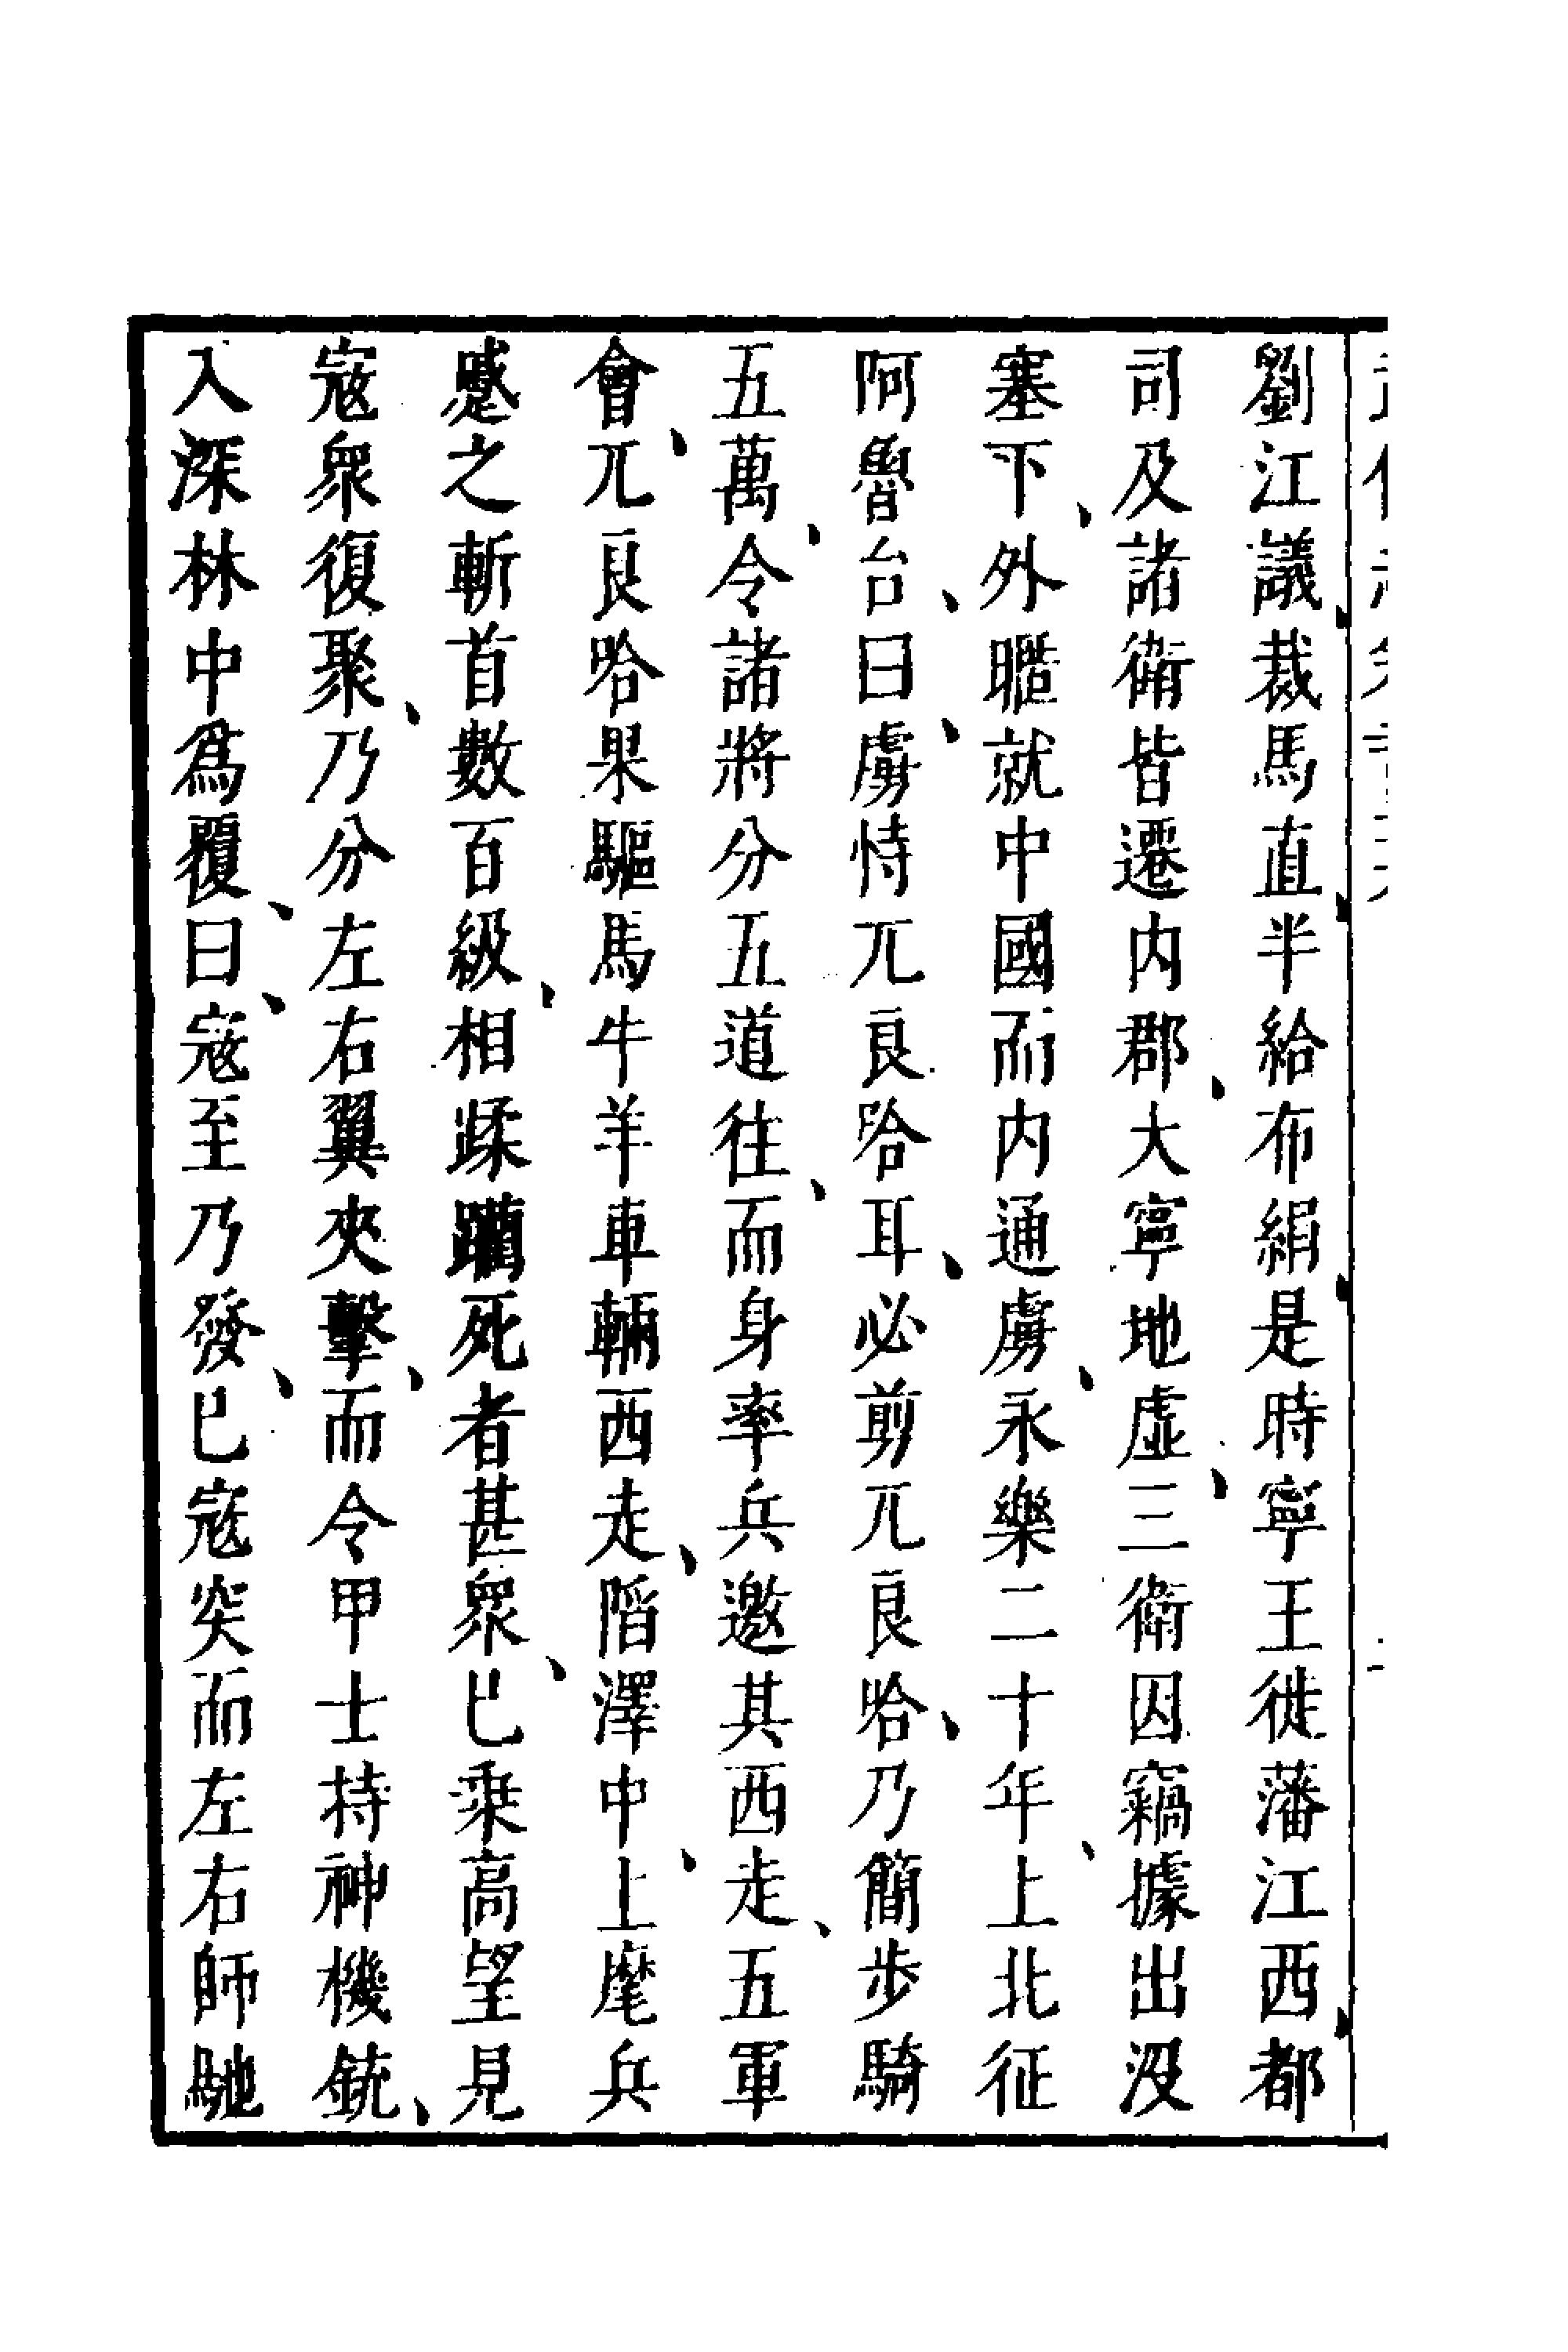 劉江議、裁馬直半、給布絹、是時寧王徙藩江西、都
司及諸衛皆遷内郡、大寧地虛、三衛因竊據出没
塞下、外𥌒就中國而内通虜、永樂二十年、上北征
阿魯台、曰、虜恃兀良哈耳、必剪兀良哈、乃簡步騎
五萬、令諸將分五道往、而身率兵邀其西走、五軍
會、兀良哈果驅馬牛羊車輛西走、陷澤中、上麾兵
蹙之斬首數百級、相蹂躪死者甚衆、已乗高望見
寇衆復聚、乃分左右翼夾擊、而令甲士持神機銃、
入深林中爲覆、曰、寇至乃發、已寇突而左右師馳